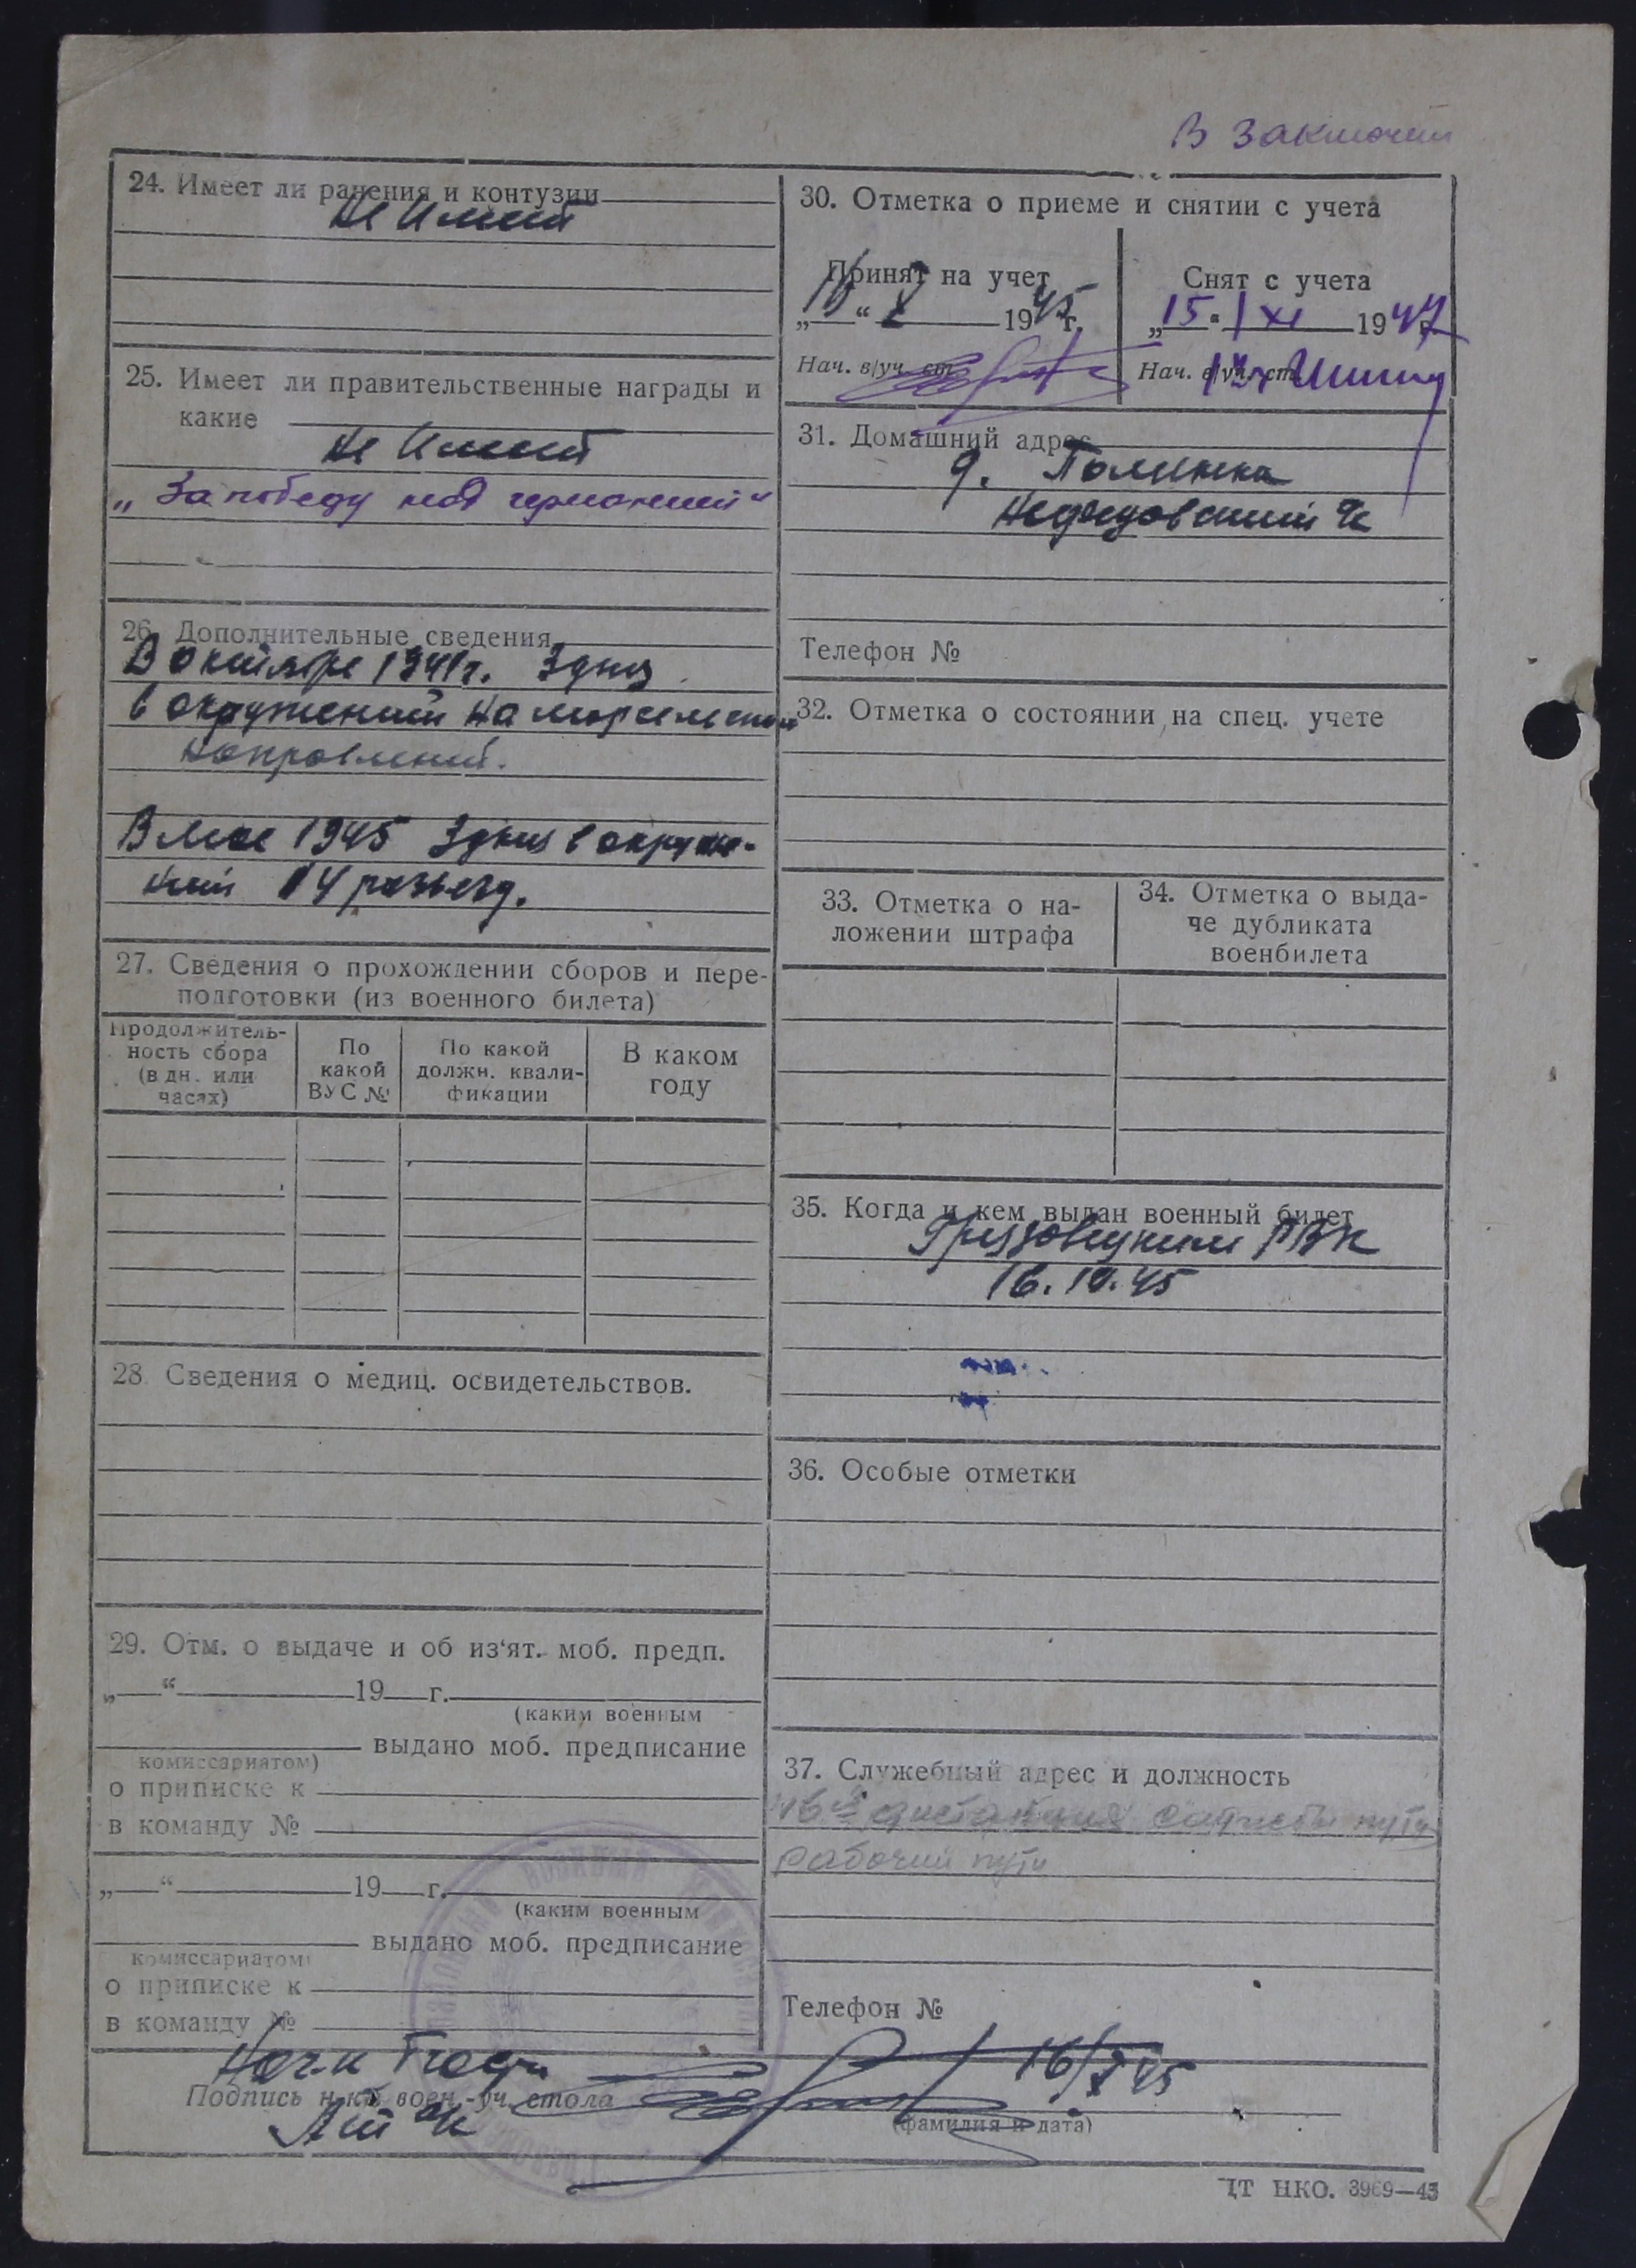 В заключен
24. Имеет ли ранения и контузии
Не имеет
25. Имеет ли правительственные награды и
какие
Не имеет
„За победу над германией“
26. Дополнительные сведения
В октябре 1941 г. 3 дня
в окружении на
направлении.
В мае 1945 3 дня в окруже-
нии 14 развед.
27. Сведения о прохождении сборов и пере-
подготовки (из военного билета)
Продолжитель-
ность сбора
(в дн. или
часах)
По
какой
ВУС №
По какой
должн. квали-
фикации
В каком
году
28. Сведения о медиц. освидетельствов.
29. Отм. о выдаче и об из‘ят. моб. предп.
„ “ 19 г.
(каким военным
выдано моб. предписание
комиссариатом)
о приписке к
в команду №
„ “ 19 г.
(каким военным
выдано моб. предписание
комиссариатом)
о приписке к
в команду №
30. Отметка о приеме и снятии с учета
Принят на учет
„16“ X 1945 г.
Нач. в/уч. ст.
Снят с учета
„15“ XI 1947 г.
Нач. в/уч. ст.
31. Домашний адрес
д.
Телефон №
32. Отметка о состоянии на спец. учете
33. Отметка о на-
ложении штрафа
34. Отметка о выда-
че дубликата
военбилета
35. Когда и кем выдан военный билет
Грязовецким РВК
16.10.45
36. Особые отметки
37. Служебный адрес и должность
16й дистанция службы пути
рабочий пути
Телефон №
Подпись н-ка воен.-уч. стола
16/X 45
(фамилия и дата)
ЦТ НКО. 3969—43